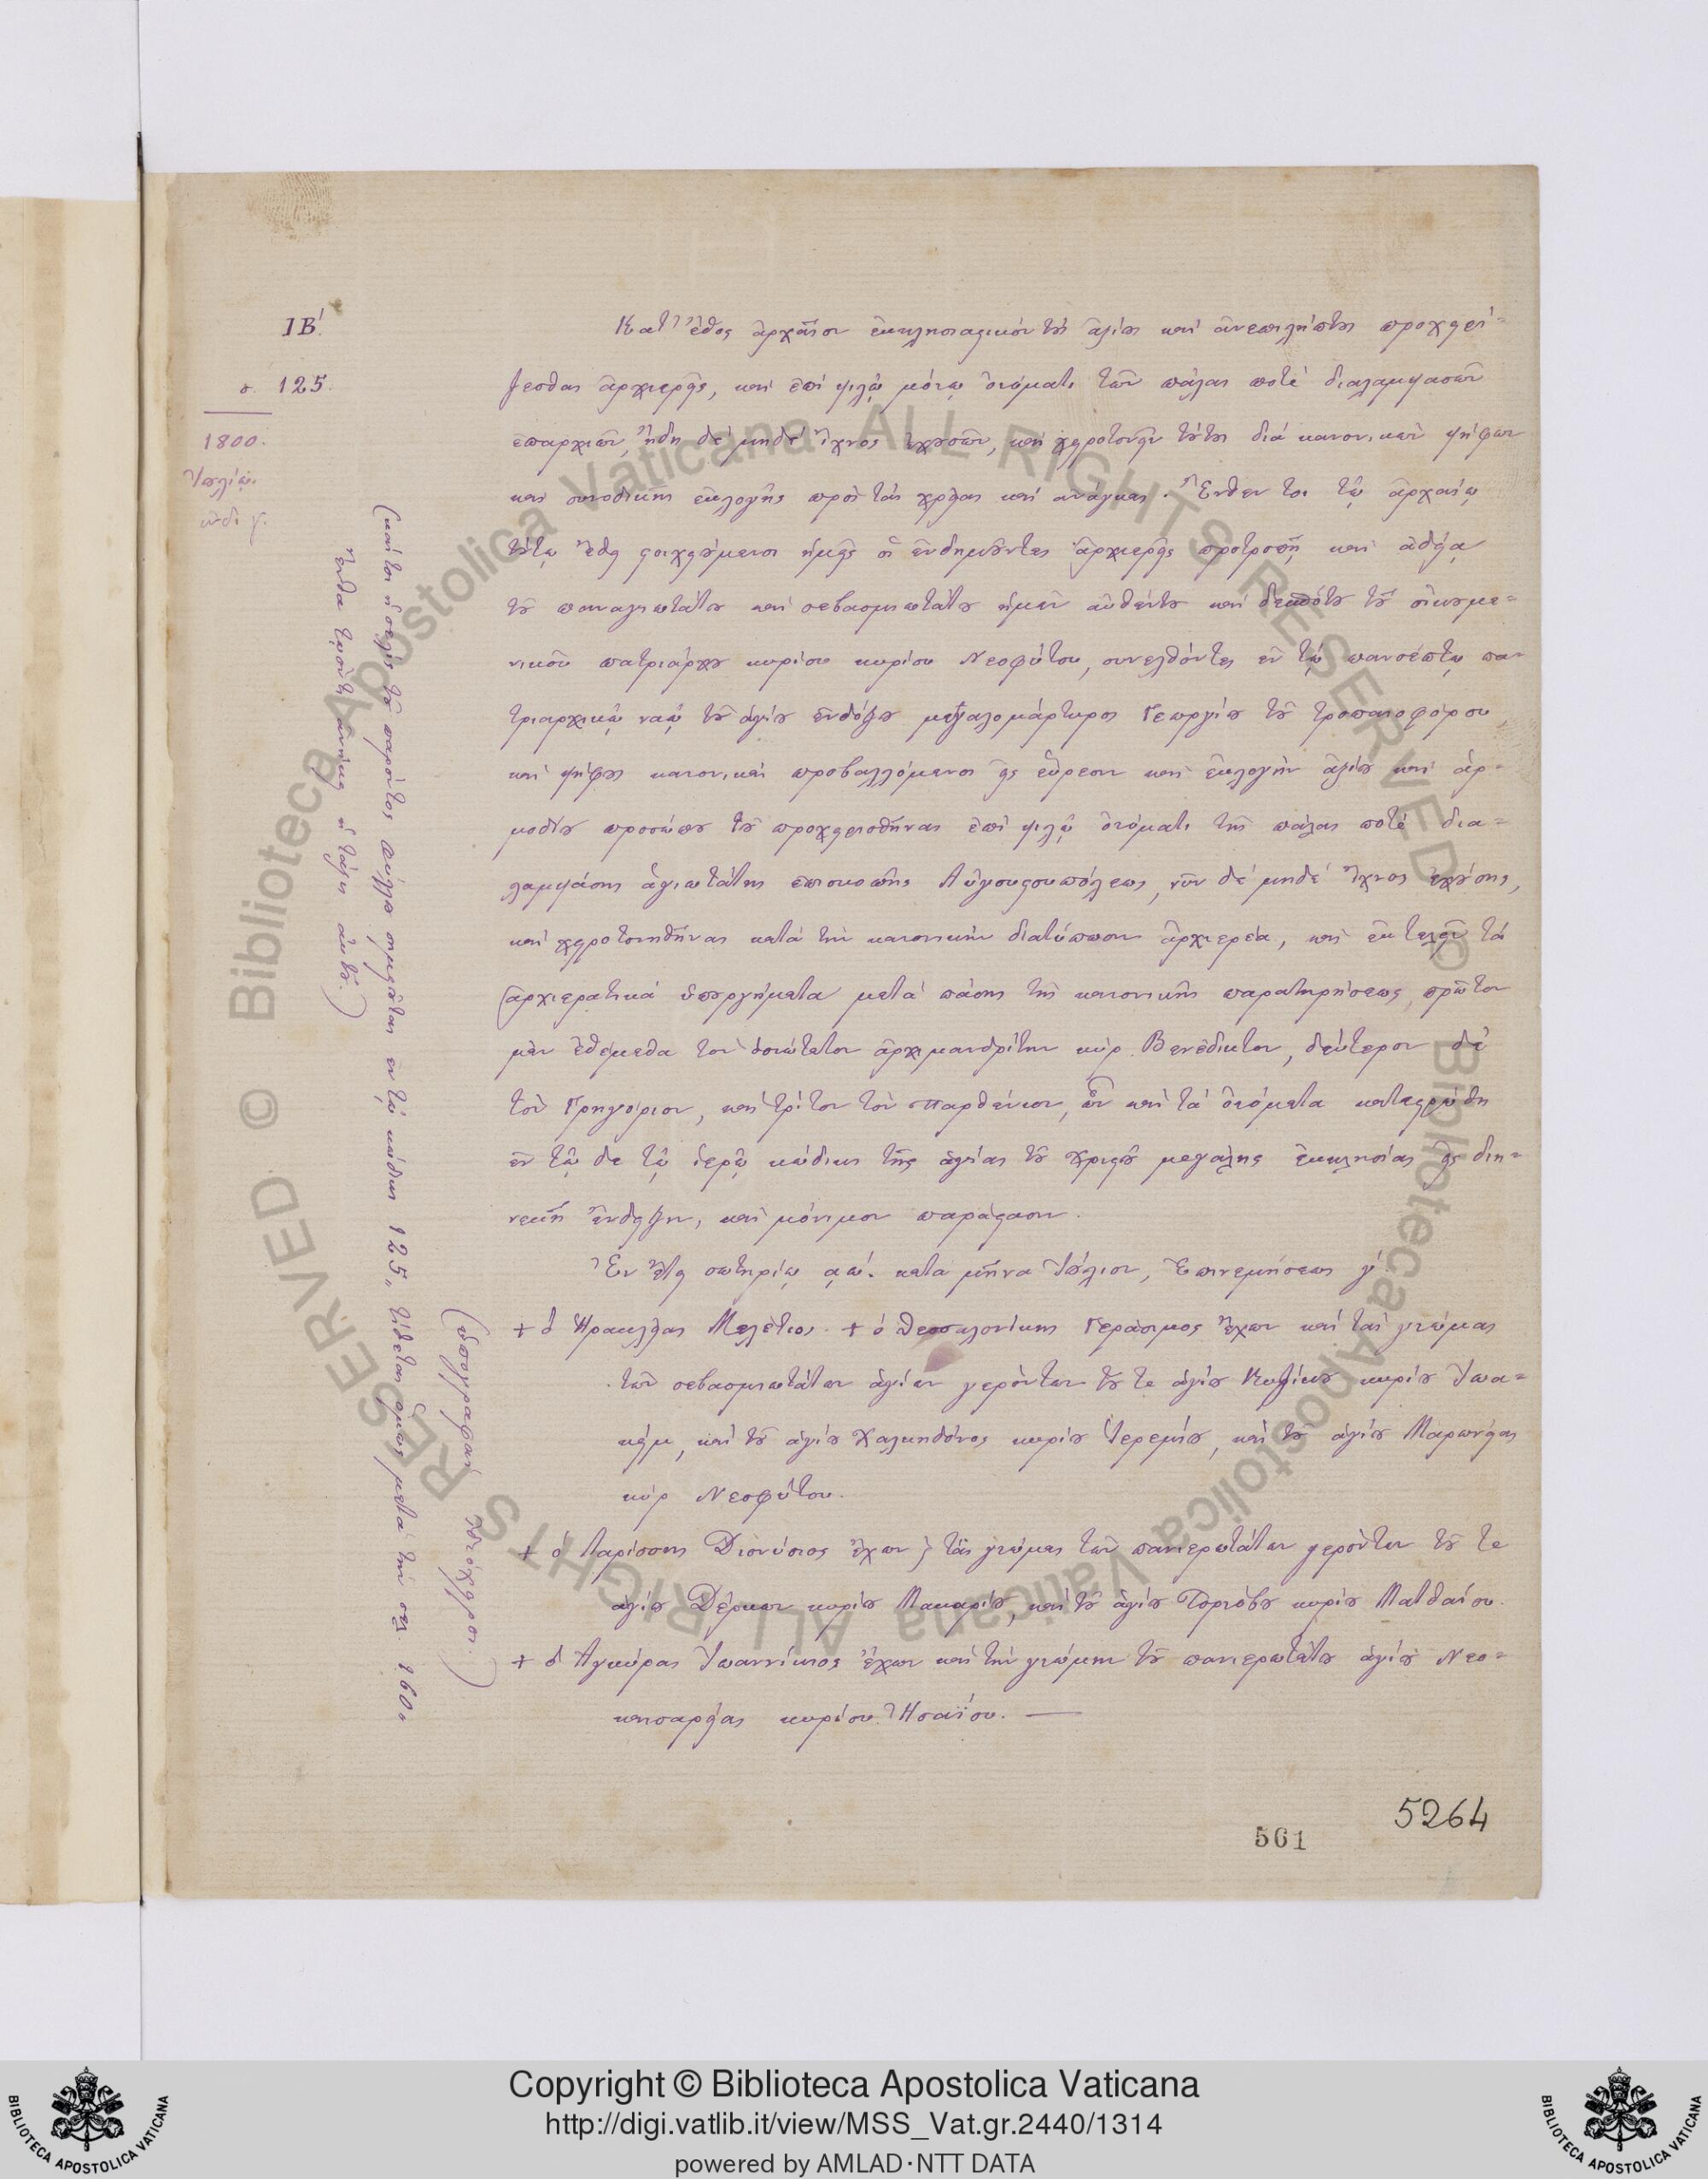 ΙΒ΄.
σ. 125.
1800.
Ἰουλίῳ.
ἰνδι γ.
Κατ' ἔθος ἀρχαῖον ἐκκλησιαστικόν τοὺς ἀξίους καὶ ἀνεπιλήπτους προχειρί=
ζεσθαι ἀρχιερεῖς, καὶ ἐπὶ ψιλῷ μόνῳ ὀνόματι τῶν πάλαι ποτὲ διαλαμψασῶν
ἐπαρχιῶν, ἤδη δὲ μηδὲ ἴχνος ἐχουσῶν, καὶ χειροτονεῖν τούτους διὰ κανονικῶν ψήφων
καὶ συνοδικῆς ἐκλογῆς πρὸς τὰς χρείας καὶ ἀνάγκας. Ἔνθεν τοι τῷ ἀρχαίῳ
τούτῳ ἔθει στοιχούμενοι ἡμεῖς οἱ ἐνδημοῦντες ἀρχιερεῖς προτροπῇ καὶ ἀδείᾳ
τοῦ παναγιωτάτου καὶ σεβασμιωτάτου ἡμῶν αὐθέντου καὶ δεσπότου τοῦ οἰκουμε=
νικοῦ πατριάρχου κυρίου κυρίου Νεοφύτου, συνελθόντες ἐν τῷ πανσέπτῳ πα=
τριαρχικῷ ναῷ τοῦ ἁγίου ἐνδόξου μεγαλομάρτυρος Γεωργίου τοῦ τροπαιοφόρου
καὶ ψήφους κανονικὰς προβαλλόμενοι εἰς εὕρεσιν καὶ ἐκλογὴν ἀξίου καὶ ἁρ=
μοδίου προσώπου τοῦ προχειρισθῆναι ἐπὶ ψιλῷ ὀνόματι τῆς πάλαι ποτὲ δια=
λαμψάσης ἁγιωτάτης ἐπισκοπῆς Αὐγουστουπόλεως, νῦν δὲ μηδὲ ἴχνος ἐχούσης,
καὶ χειροτονηθῆναι κατὰ τὴν κανονικὴν διατύπωσιν ἀρχιερέα, καὶ ἐκτελεῖν τὰ
ἀρχιερατικά ὑπουργήματα μετὰ πάσης τῆς κανονικῆς παρατηρήσεως, πρῶτον
μὲν ἐθέμεθα τὸν ὁσιώτατον ἀρχιμανδρίτην κύρ. Βενέδικτον, δεύτερον δὲ
τὸν Γρηγόριον, καὶ τρίτον τὸν Παρθένιον, ὧν καὶ τὰ ὀνόματα κατεστρώθη
ἐν τῷ δε τῷ ἱερῷ κώδικι τῆς ἁγίας τοῦ Χριστοῦ μεγάλης ἐκκλησίας εἰς διη=
νεκῆ ἔνδειξιν, καὶ μόνιμον παράστασιν.
Ἐν ἔτει σωτηρίῳ αω΄. κατα μῆνα Ἰούλιον, Ἐπινεμήσεως γ΄.
+ ὁ Ἡρακλείας Μελέτιος. + ὁ Θεσσαλονίκης Γεράσιμος ἔχων καὶ τὰς γνώμας
τῶν σεβασμιωτάτων ἁγίων γερόντων τοῦ τε ἁγίου Κυζίκου κυρίου Ἰωα=
κείμ, καὶ τοῦ ἁγίου Χαλκηδόνος κυρίου Ἱερεμίου, καὶ τοῦ ἁγίου Μαρωνείας
κύρ Νεοφύτου.
+ ὁ Λαρίσσης Διονύσιος ἔχων ϗ τὰς γνώμας τῶν πανιερωτάτων γερόντων τοῦ τε
ἁγίου Δέρκων κυρίου Μακαρίου, καὶ τοῦ ἁγίου Τορνόβου κυρίου Ματθαίου.
+ ὁ Ἀγκύρας Ἰωαννίκιος ἔχων καὶ τὴν γνώμην τοῦ πανιερωτάτου ἁγίου Νεο=
καισαρείας κυρίου Ἡσαΐου. —
(καί τοι ἡ σελὶς τοῦ παρόντος φύλλου σημειοῦται ἐν τῷ κώδικι 125, τίθεται ὅμως μετὰ τὴν σελ. 160.
ἔνθα τῳόντι ἀνήκει ἡ τάξις αὐτοῦ.)
(ὑπογραφαὶ ἰδιόχειροι.)
561
5264
© Biblioteca Apostolica Vaticana ALL RIGHTS RESERVED
© Biblioteca Apostolica Vaticana ALL RIGHTS RESERVED
Copyright © Biblioteca Apostolica Vaticana
http://digi.vatlib.it/view/MSS_Vat.gr.2440/1314
powered by AMLAD·NTT DATA
BIBLIOTECA APOSTOLICA VATICANA
BIBLIOTECA APOSTOLICA VATICANA